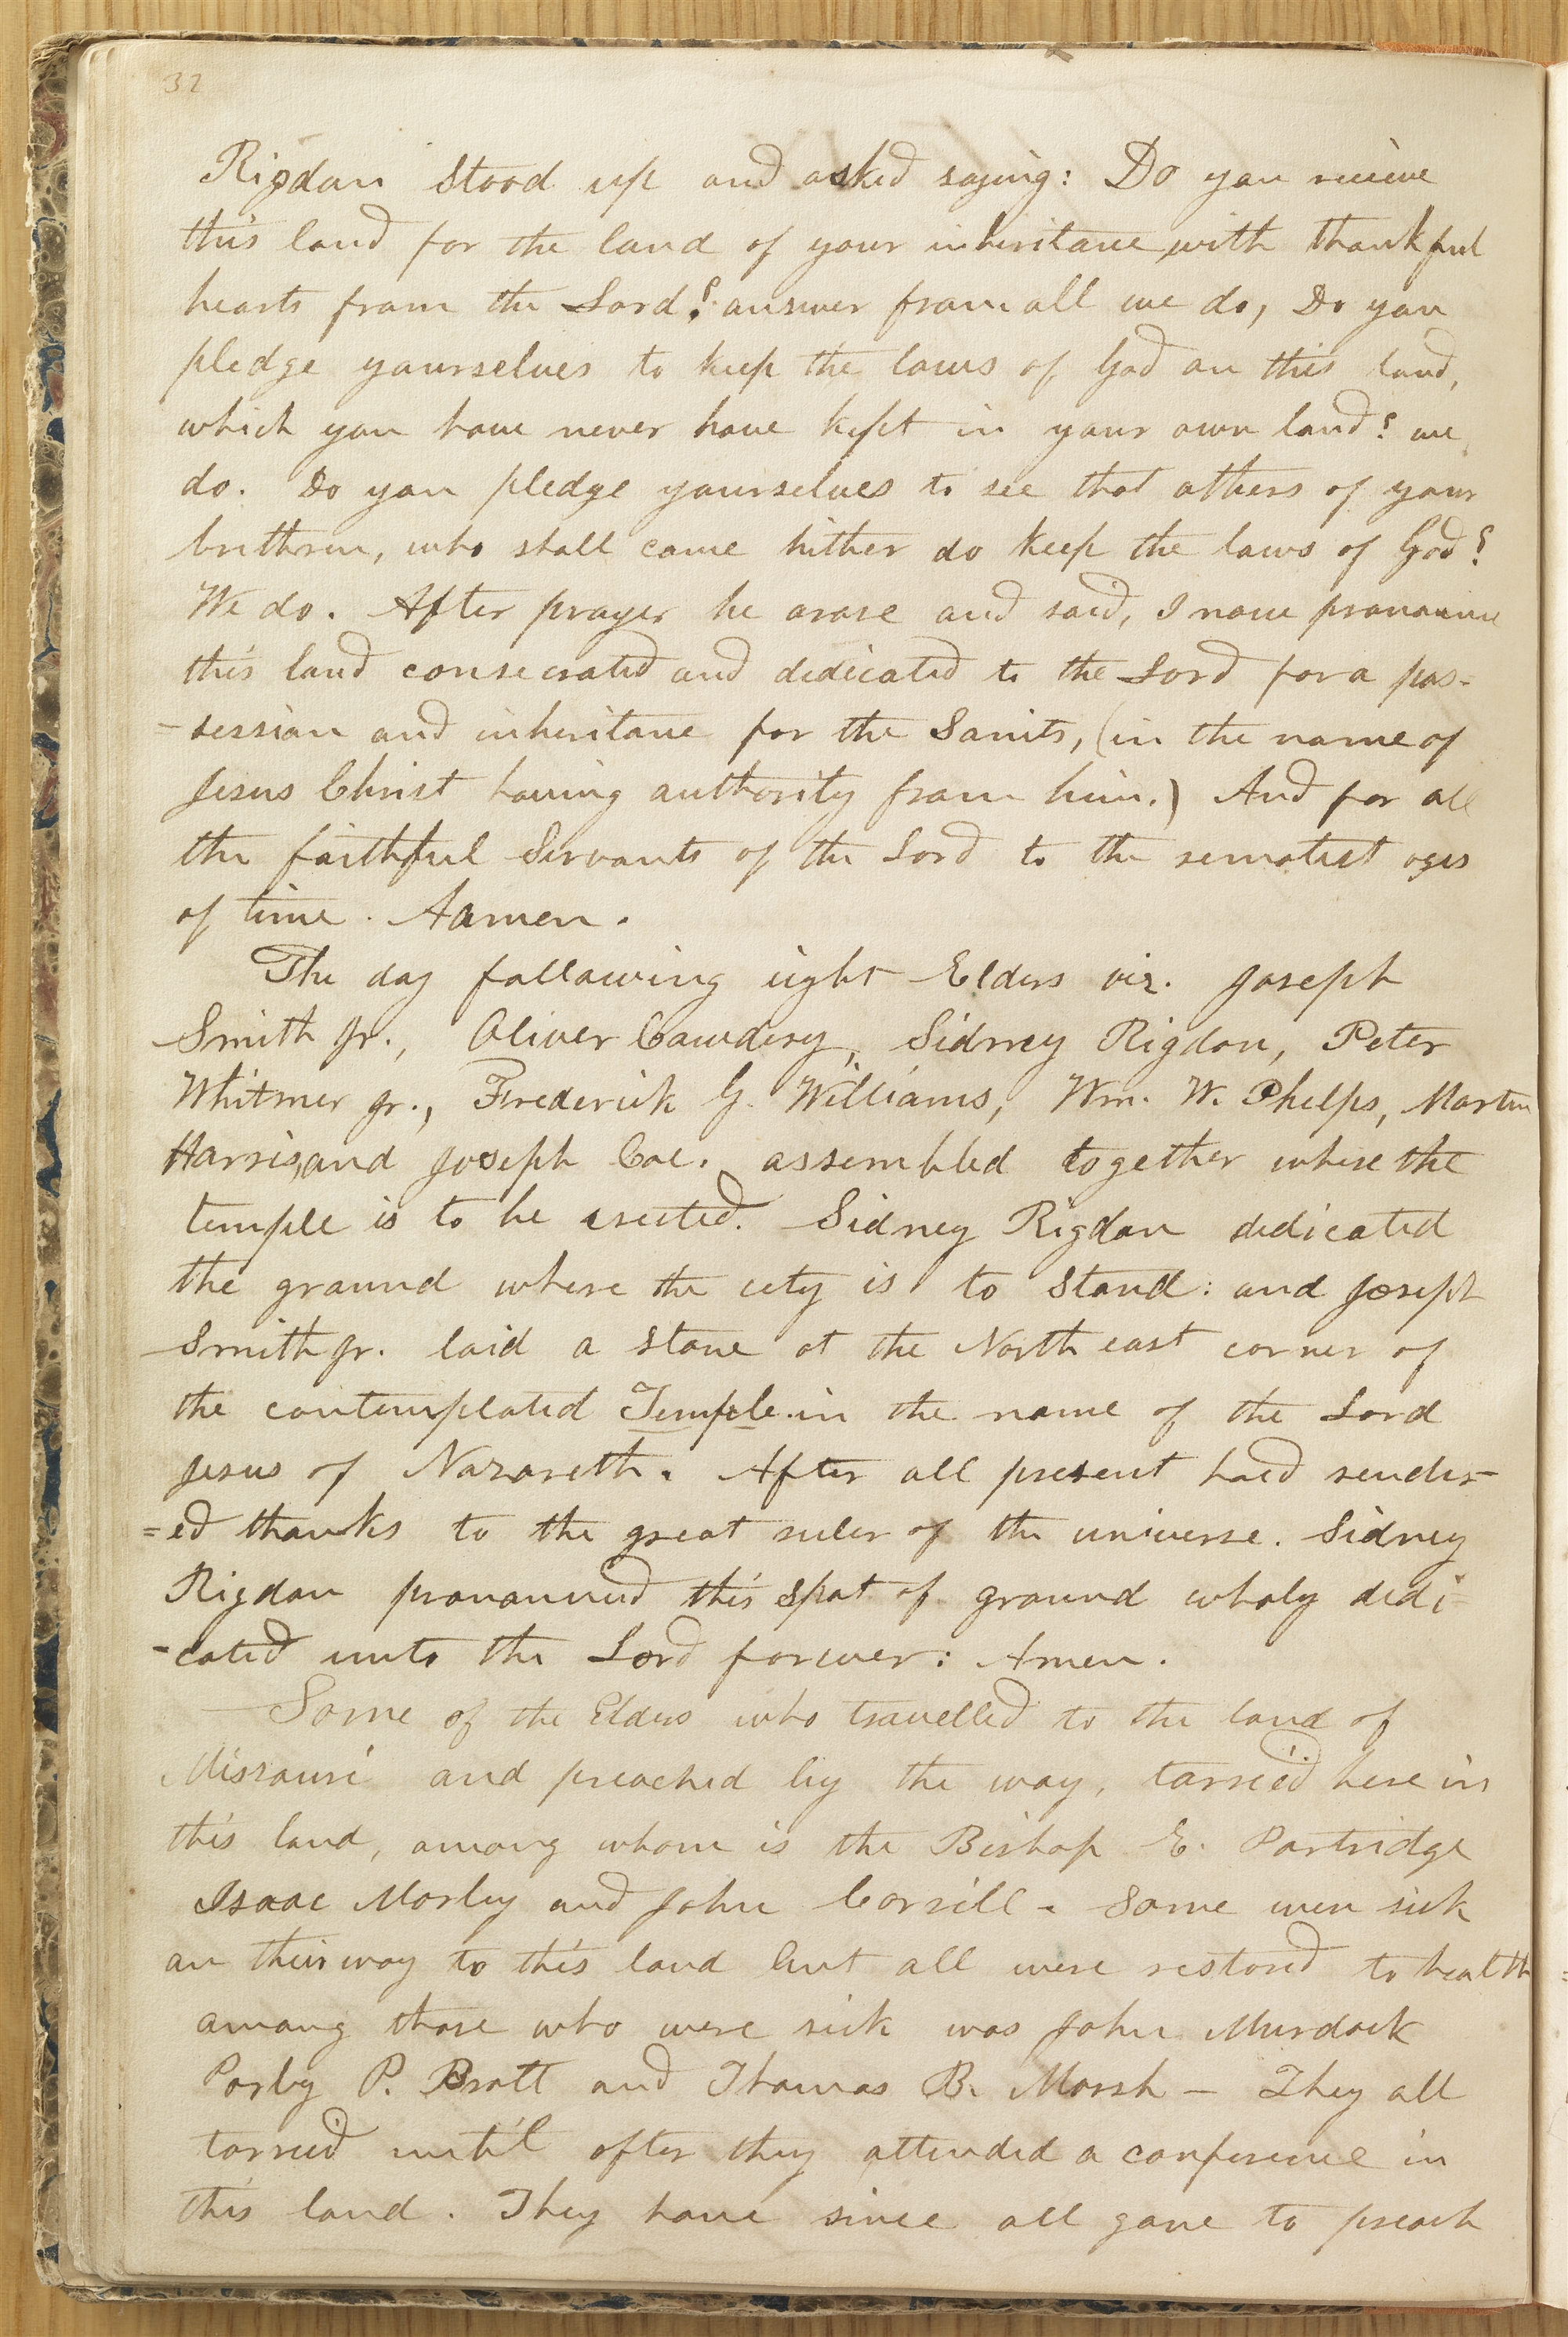 32
Rigdon Stood up and asked saying: Do you recieve
this land for the land of your inheritance with thankful
hearts from the Lord? answer from all we do, Do you
pledge yourselves to keep the laws of God on this land,
which you have never have kept in your own land? we
do. Do you pledge yourselves to see that others of your
brethren, who shall come hither do keep the laws of God?
We do. After prayer he arose and said, I now pronounce
this land consecrated and dedicated to the Lord for a pos-
-session and inheritance for the Saints, (in the name of
Jesus Christ having authority from him.) And for all
the faithful Servants of the Lord to the remotest ages
of time. Aamen.
The day following eight Elders viz. Joseph
Smith Jr., Oliver Cowdery, Sidney Rigdon, Peter
Whitmer Jr., Frederick G. Williams, Wm. W. Phelps, Martin
Harris, and Joseph Coe. assembled together where the
temple is to be erected. Sidney Rigdon dedicated
the ground where the city is to Stand: and Joseph
Smith Jr. laid a stone at the North east corner of
the contemplated Temple in the name of the Lord
Jesus of Nazareth. After all present had render-
=ed thanks to the great ruler of the universe. Sidney
Rigdon pronounced this Spot of ground wholy dedi-
-cated unto the Lord forever: Amen.
Some of the Elders who travelled to the land of
Missouri and preached by the way, tarried here in
this land, among whom is the Bishop E. Partridge
Isaac Morley and John Corrill. Some were sick
on their way to this land but all were restored to health
among those who were sick was John Murdock
Parley P. Pratt and Thomas B. Marsh – They all
tarried until after they attended a conference in
this land. They have since all gone to preach